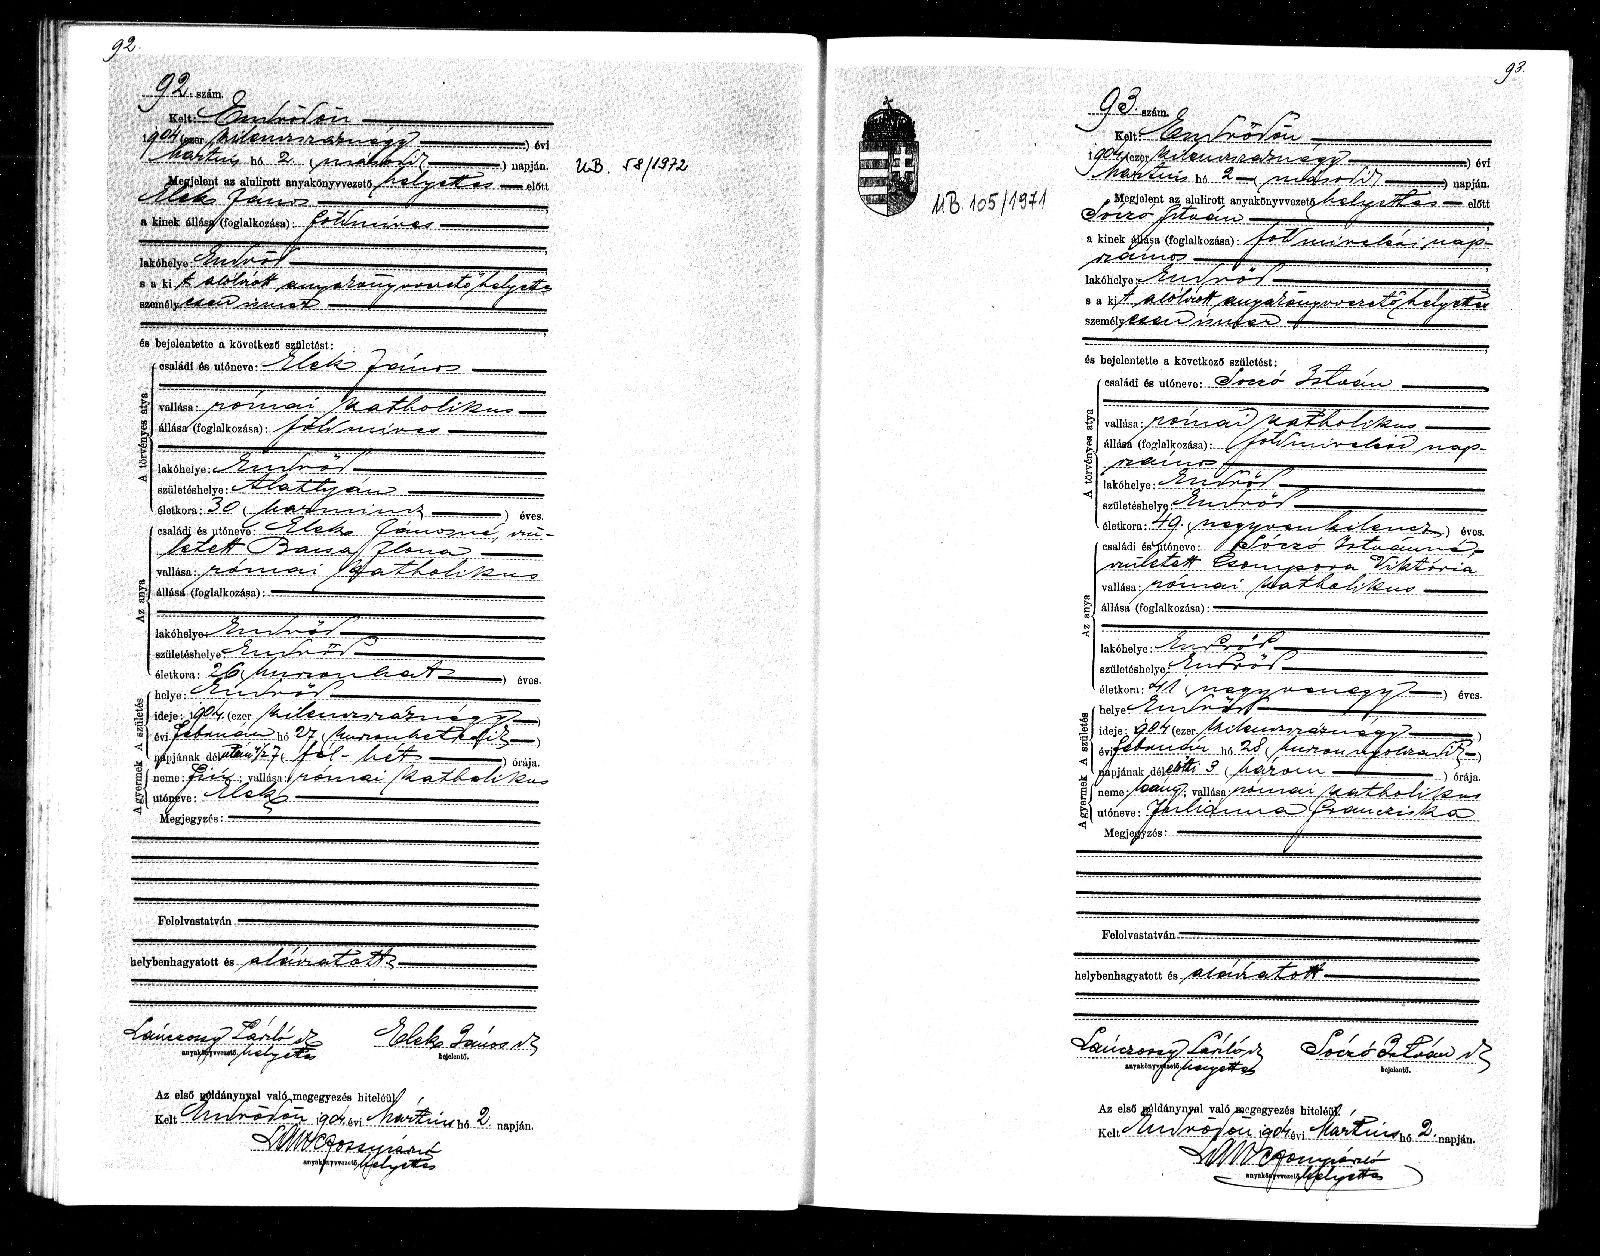 92.
92. szám.
Kelt: Endrődön
1904 (ezer kilencszáznégy) évi
Martius hó 2 (második) napján.
UB. 58/1972
Megjelent az alulirott anyakönyvvezető helyettes előtt
Elek János
a kinek állása (foglalkozása): földmives
lakóhelye: Endrőd
s a kit alólirott anyakönyvvezető helyettes
személyesen ismer
és bejelentette a következő születést:
A törvényes atya
családi és utóneve: Elek János
vallása: római katholikus
állása (foglalkozása): földmives
lakóhelye: Endrőd
születéshelye: Alattyán
életkora: 30 (harmincz) éves.
Az anya
családi és utóneve: Elek Jánosné, szü-
letett Barsa Ilona
vallása: római katholikus
állása (foglalkozása):
lakóhelye: Endrőd
születéshelye: Endrőd
életkora: 26 (huszonhat) éves.
A gyermek A születés
helye: Endrőd
ideje: 1904 (ezer kilencszáznégy)
évi Február hó 27 (huszonhetedik)
napjának délután 1/2 7 (fél-hét) órája.
neme: fiú; vallása: római katholikus
utóneve: Elek
Megjegyzés:
Felolvastatván
helybenhagyatott és aláiratott
Lánczossy László sk Elek János sk
anyakönyvvezető helyettes bejelentő.
Az első példánynyal való megegyezés hiteléül
Kelt Endrődön 1904 évi Mártius hó 2. napján.
Lánczossy László
anyakönyvvezető helyettes
93.
93. szám.
Kelt: Endrődön
1904 (ezer kilencszáznégy) évi
Martius hó 2 (második) napján.
UB. 105/1971
Megjelent az alulirott anyakönyvvezető helyettes előtt
Soczó István
a kinek állása (foglalkozása): földmivelési nap-
számos
lakóhelye: Endrőd
s a kit alólirott anyakönyvvezető helyettes
személyesen ismer
és bejelentette a következő születést:
A törvényes atya
családi és utóneve: Soczó István
vallása: római katholikus
állása (foglalkozása): földmivelési nap-
számos
lakóhelye: Endrőd
születéshelye: Endrőd
életkora: 49. (negyvenkilencz) éves.
Az anya
családi és utóneve: Sóczó Istvánné,
született Csompora Viktória
vallása: római katholikus
állása (foglalkozása):
lakóhelye: Endrőd
születéshelye: Endrőd
életkora: 41 (negyvenegy) éves.
A gyermek A születés
helye: Endrőd
ideje: 1904 (ezer kilencszáznégy)
évi február hó 28 (huszonnyolczadik)
napjának délelőtti 3 (három) órája.
neme: leány; vallása: római katholikus
utóneve: Julianna Francziska
Megjegyzés:
Felolvastatván
helybenhagyatott és aláiratott
Lánczossy László sk Sóczó István sk
anyakönyvvezető helyettes bejelentő.
Az első példánynyal való megegyezés hiteléül.
Kelt Endrődön 1904 évi Mártius hó 2. napján.
Lánczossy László
anyakönyvvezető helyettes